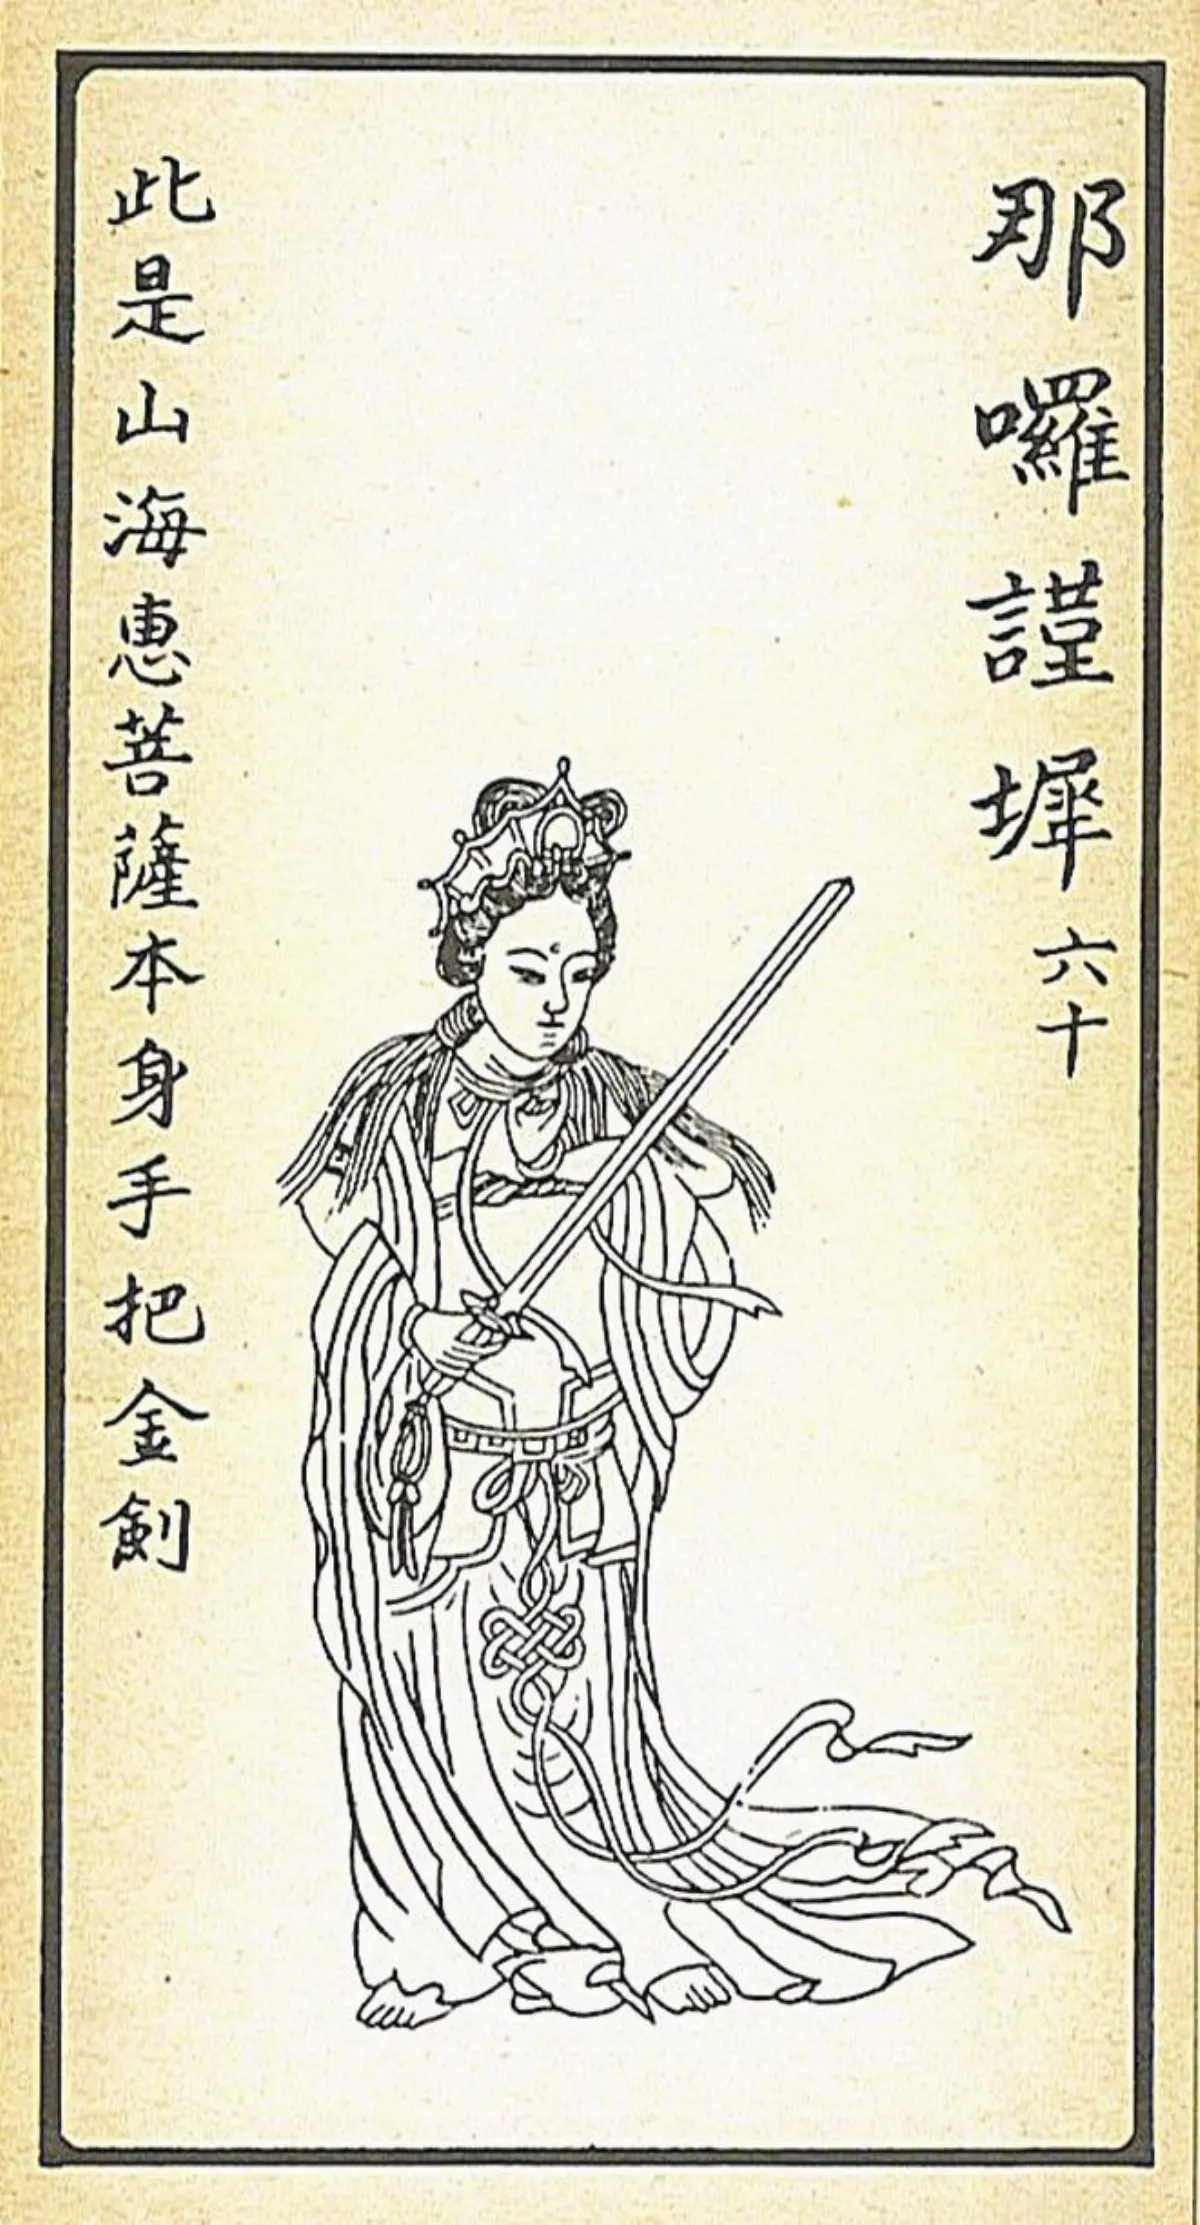 那囉謹墀六十
此是山海惠菩薩本身手把金劍